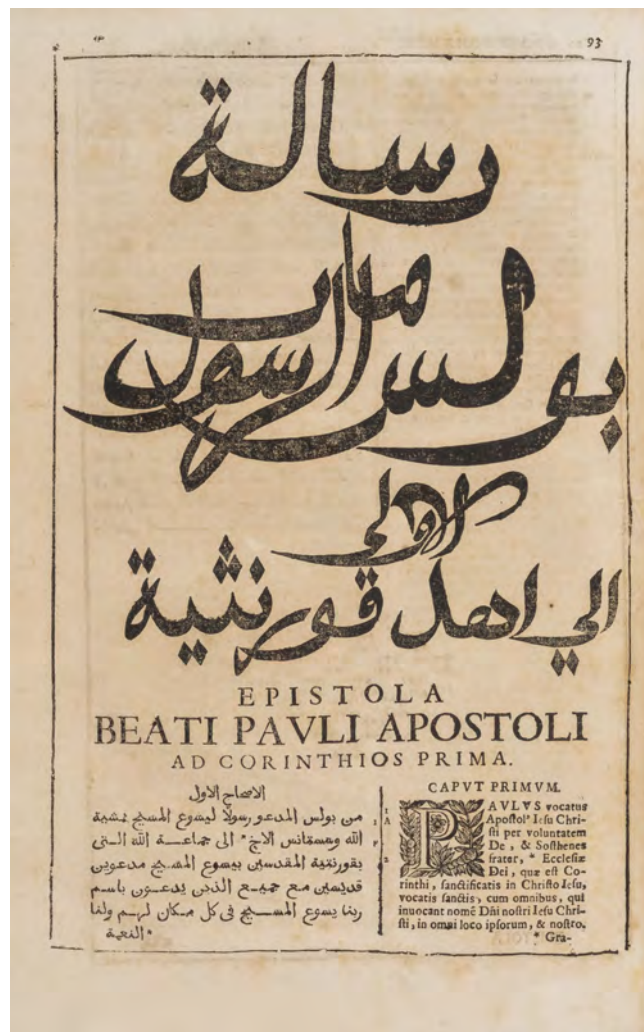 93
رسالة
بولس الرسول
الاولي
الي اهل قورنثية
EPISTOLA
BEATI PAVLI APOSTOLI
AD CORINTHIOS PRIMA.
الاصحاح الاول
من بولس المدعو رسولا ليسوع المسيح بمشية
الله وسستانس الاخ * الى جماعة الله التى
بقورنتية المقدسين بيسوع المسيح مدعوين
قديسين مع جميع الذين يدعون باسم
ربنا يسوع المسيح فى كل مكان لهم ولنا
* النعمة
CAPVT PRIMVM.
PAVLVS vocatus
Apostol⁹ Iesu Chri-
sti per voluntatem
De, & Sosthenes
frater, * Ecclesiæ
Dei, quæ est Co-
rinthi, sanctificatis in Christo Iesu,
vocatis sanctis, cum omnibus, qui
inuocant nomē Dñi nostri Iesu Chri-
sti, in omni loco ipsorum, & nostro.
* Gra-